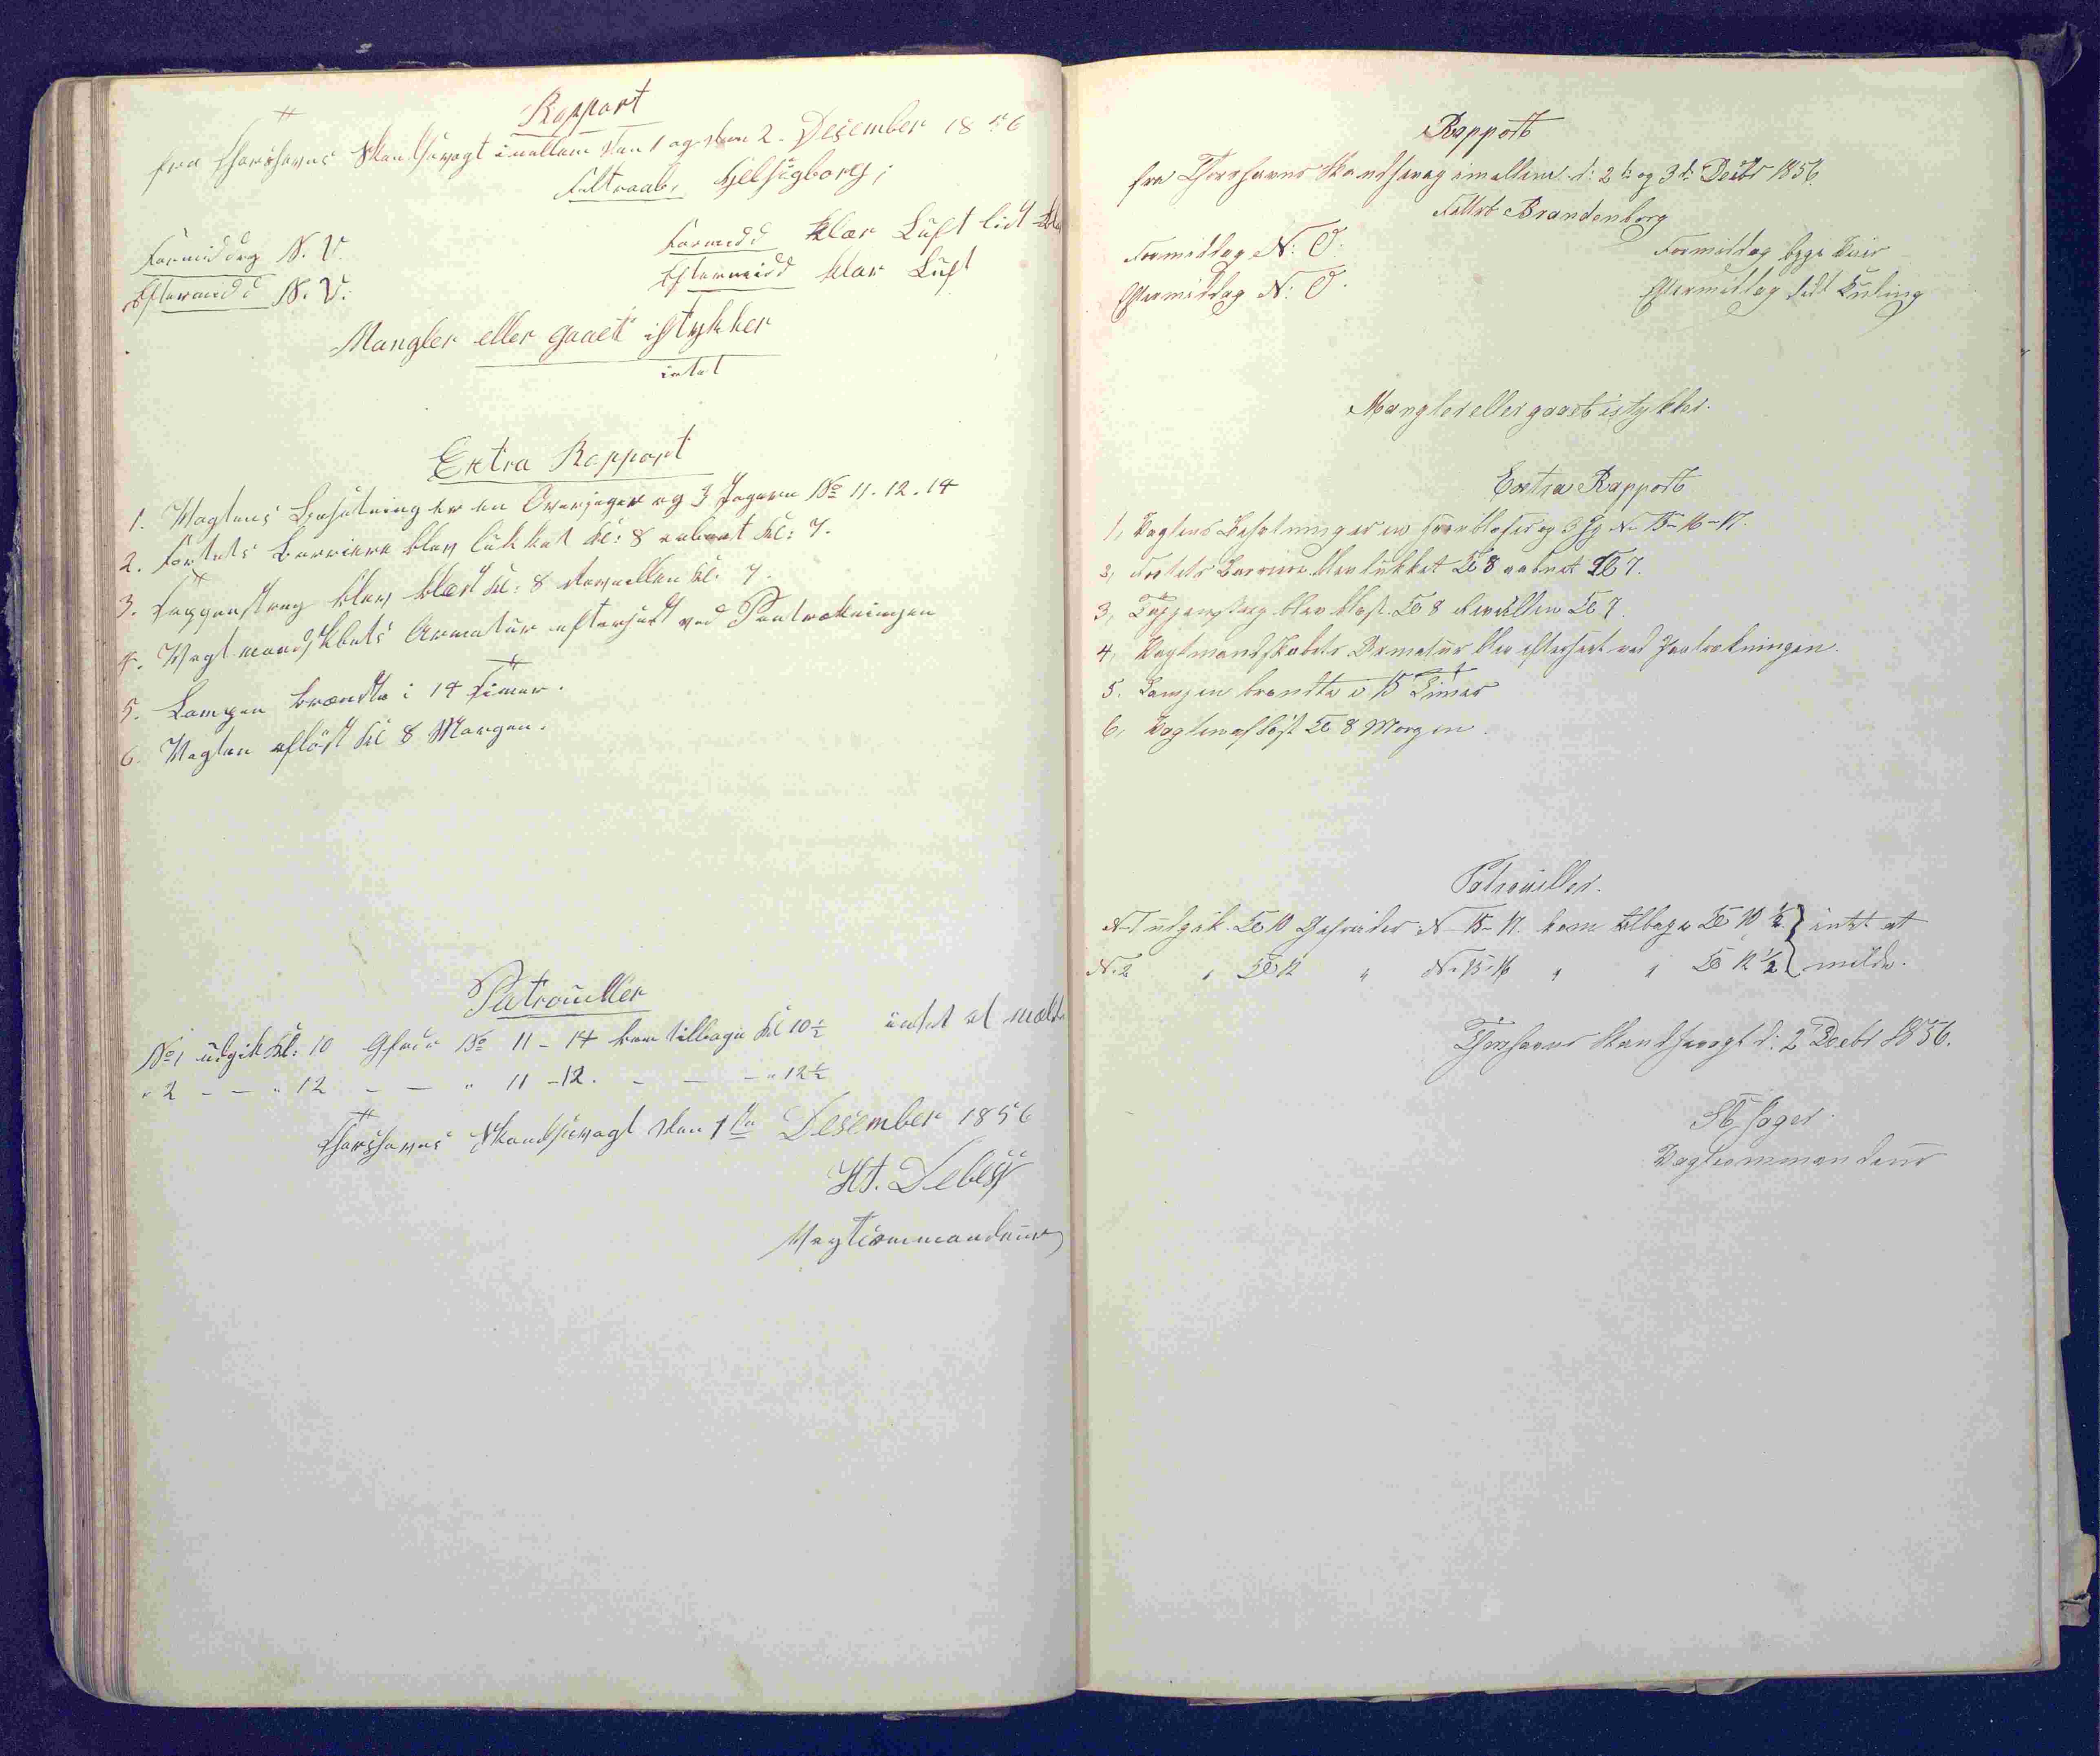 Rapport
fra Thorshavns Skandsevagt imellem den 1 og den 2. December 1856
Feltraab, Helsigborg;
Formiddag N. V. Formidd klar Luft lidt
Eftermidd N. V. Eftermidd klar Luft
Mangler eller gaaet istykker
intet
Extra Rapport
1. Vagtens Besætning er en Overjæger og 3 Jægere No 11. 12. 14
2. Fortets Barriere blev lukket Kl: 8 aabnet Kl: 7.
3. Tappenstreg blev blæst Kl: 8 Revellen Kl. 7.
4. Vagtmandskabets Armatur efterseet ved Paatrækningen
5. Lampen brændte i 14 Timer.
6. Vagten afløst Kl 8 Morgen.
Patrouiller
No 1 udgik Kl: 10 Gfrede No 11 - 14 kom tilbage Kl 10½ intet at melde
" 2 - - " 12 - - " 11 - 12. - - - " 12½
Thorshavns Skandsevagt den 1ste December 1856
Debess
Vagtcommandeur
Rapport
fra Thorshavns Skandsevag imellem d: 2de og 3de Decbr 1856.
Feltrb Brandenborg
Formiddag N: O: Formiddag byge Veir
Eftermiddag N: O. Eftermiddag lidt Kuling
Mangler eller gaaet istykker.
Extra Rapport
1, Vagtens Besætning er en Hornblæser og 3 Jg No 15-16-17.
2, Fortets Barriere blev lukket Kl 8 aabnet Kl 7.
3, Tappenstreg blev blæst Kl 8 Revellen Kl 7.
4, Vagtmandskabets Armatur blev efterseet ved Paatrækningen.
5. Lampen brændte i 15 Timer
6, Vagten afløst Kl 8 Morgen.
Patrouiller.
No 1 udgik Kl 10 Gefreider No 15-17. kom tilbage Kl 10 ½ } intet at
No 2 " Kl 12 " No 15-16 " " Kl 12 ½ } melde.
Thorshavns Skandsevagt d: 2 Decbr 1856.
Vagtcommandeur